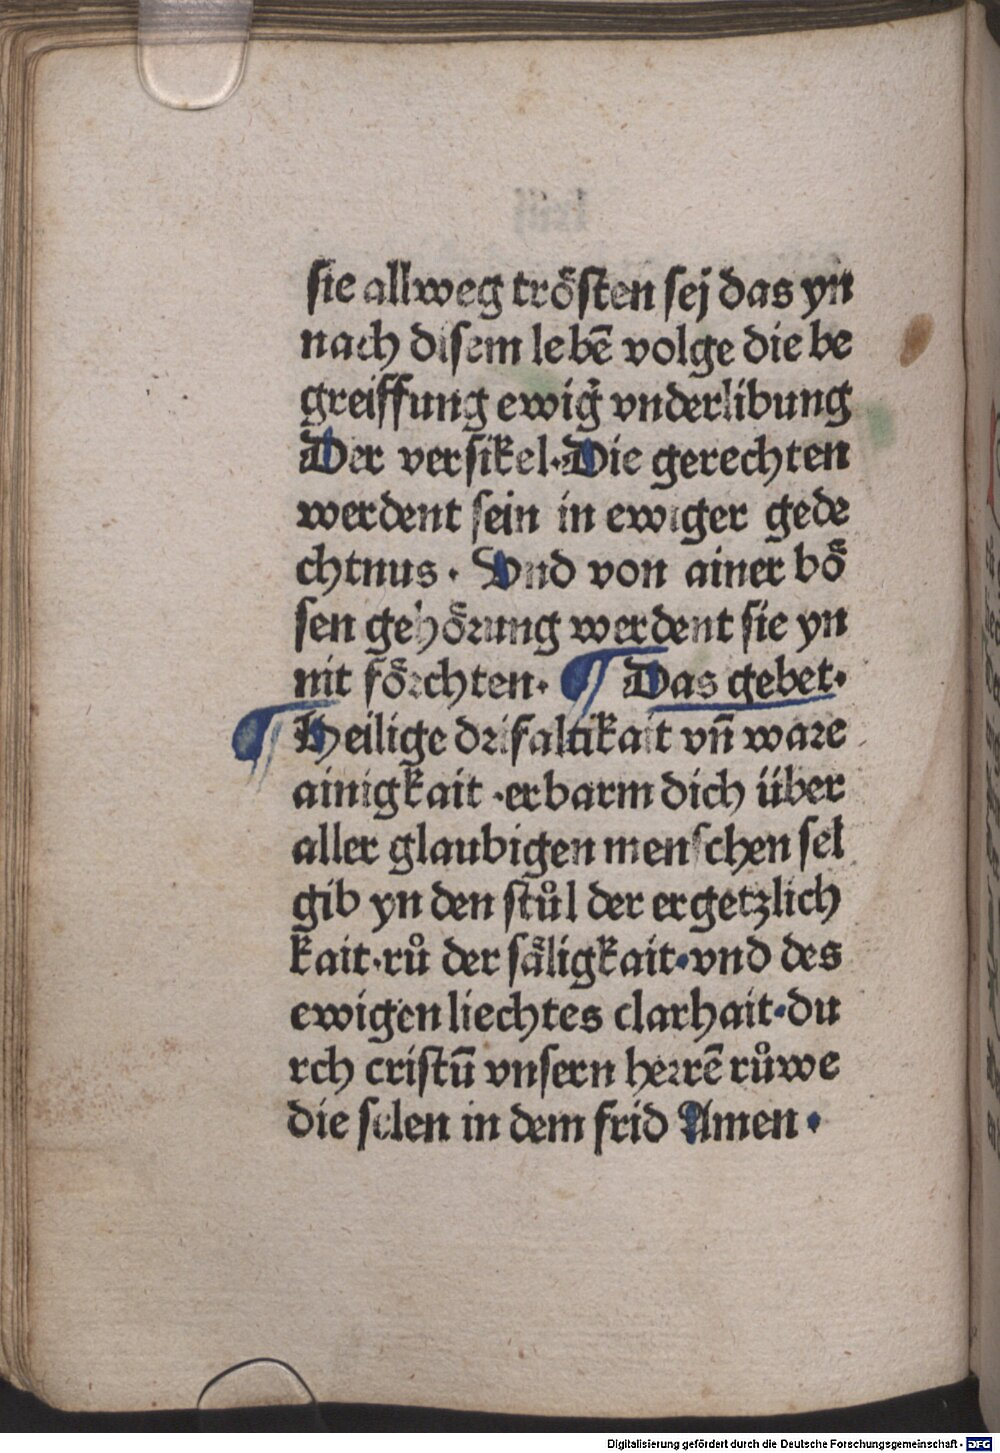 sie allweg trösten sej das yn
nach disem lebē volge die be
greiffung ewiḡ vnderlibung
Der versikel·Die gerechten
werdent sein in ewiger gede
chtnus · Vnd von ainer bö
sen gehörung werdent sie yn
nit förchten· ¶ Das gebet·
¶ Heilige drifaltikait vn̄ ware
ainigkait ·erbarm dich über
aller glaubigen menschen sel
gib yn den stůl der ergetzlich
kait·rů der säligkait·vnd des
ewigen liechtes clarhait·du
rch cristū vnsern herrē růwe
die selen in dem frid Amen ·
Digitalisierung gefördert durch die Deutsche Forschungsgemeinschaft - DFG